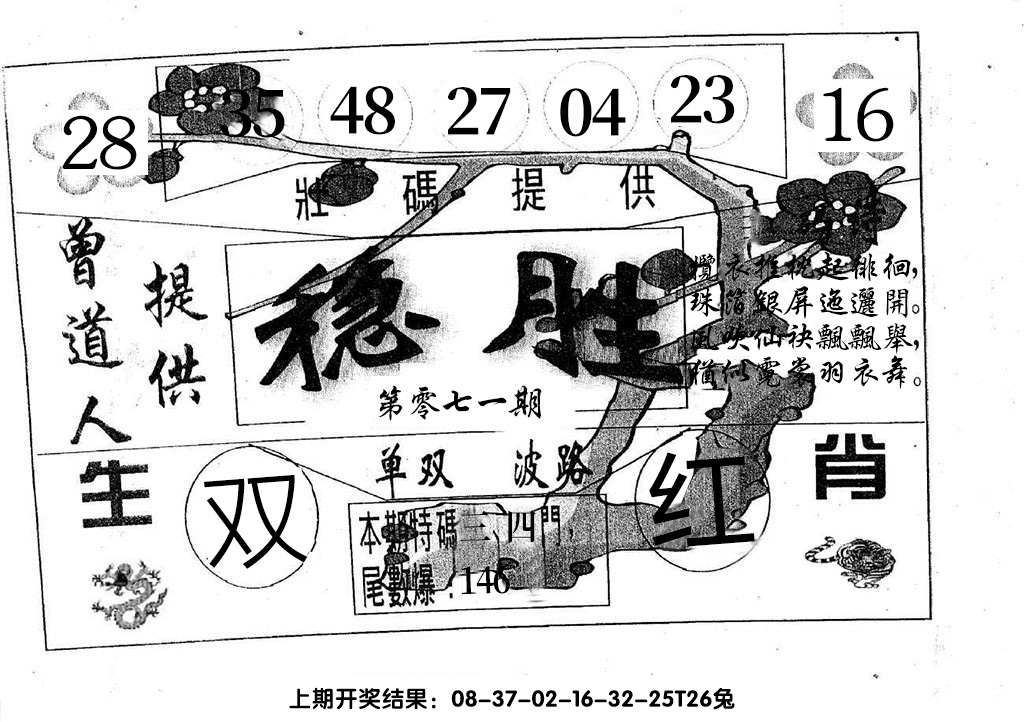 28 35 48 27 04 23 16
壯碼提供
特
曾道人
提供
稳胜
第零七一期
衣 起徘徊,
珠箔銀屏迤邐開。
風吹仙袂飄飄舉,
猶似霓裳羽衣舞。
单双 波路
生肖
双
红
本期特碼三、四門,
尾數爆:146
上期开奖结果:08-37-02-16-32-25T26兔